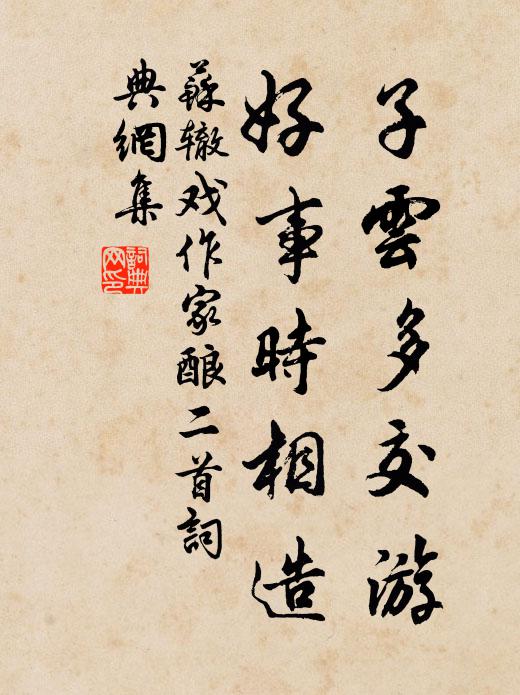 子雲多交游
好事時相造
蘇辙戏作家酿二首詞
典網集
詞典
网印